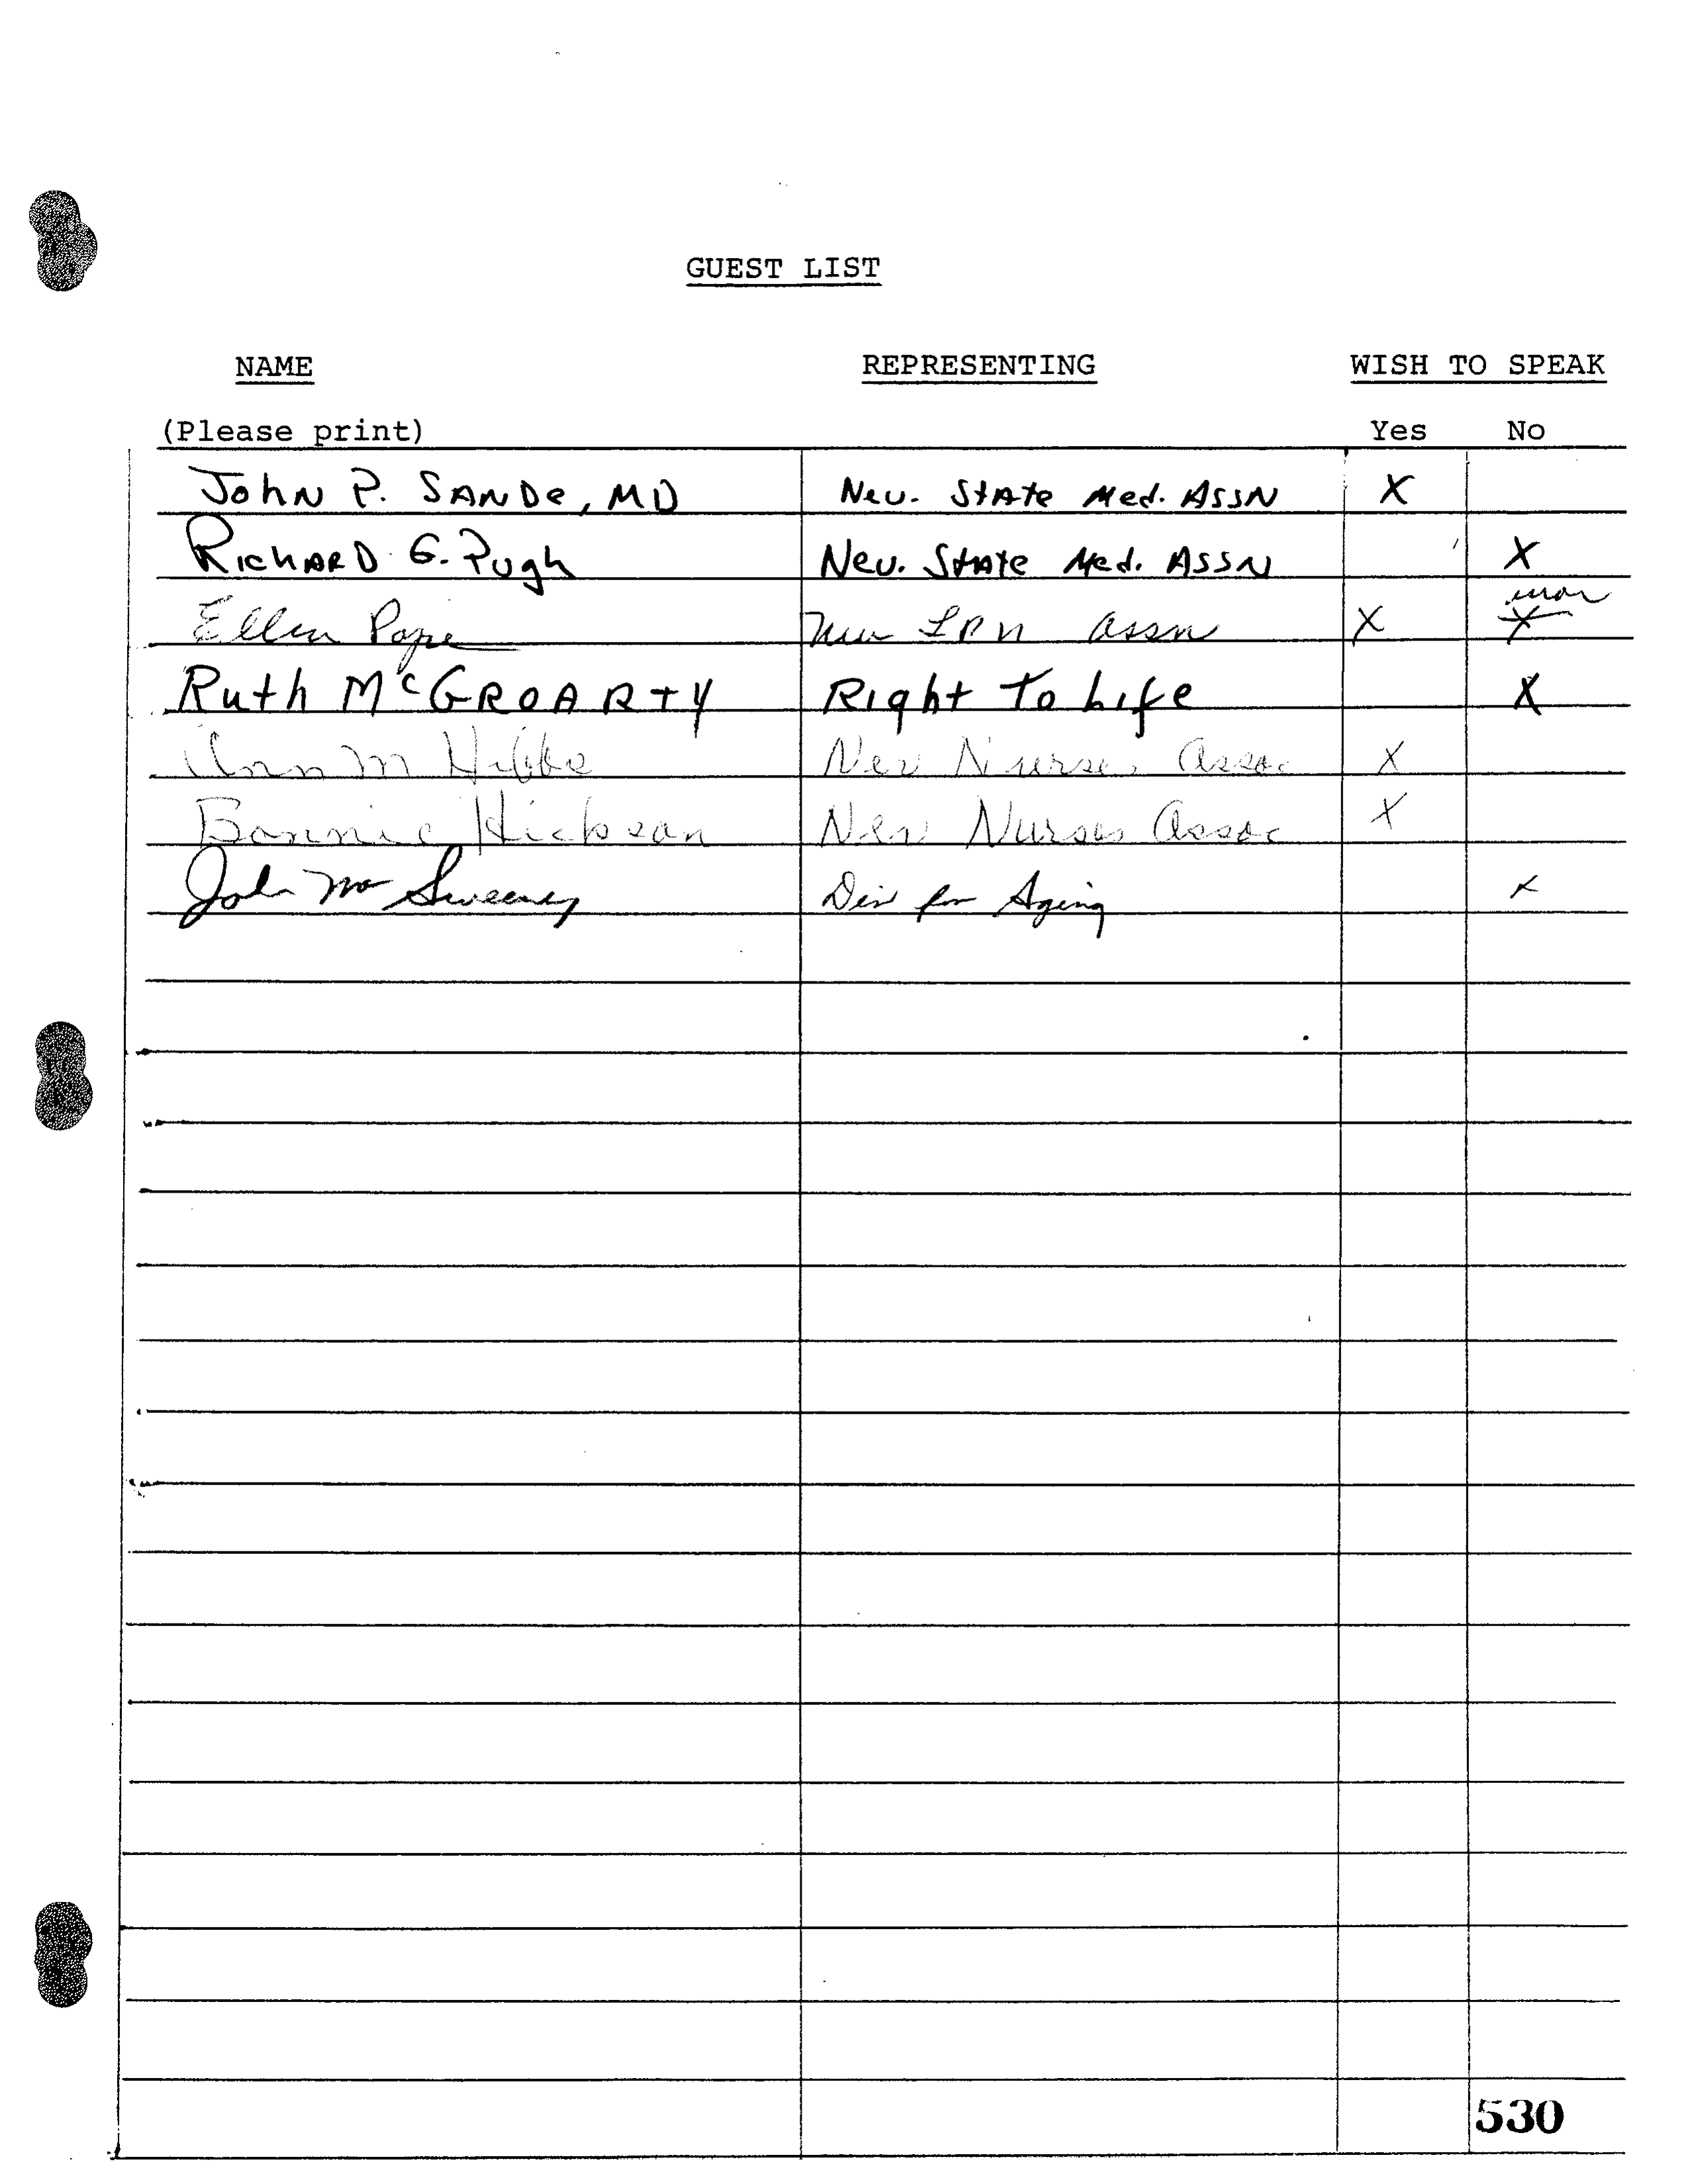 GUEST LIST
NAME REPRESENTING WISH TO SPEAK
(Please print) Yes No
John P. SANDe, MD Nev. StAte Med. ASSN X
RichARD G. Pugh Nev. StAte Med. ASSN X
error
Ellen Pope Nev LPN assn X X
Ruth McGROARTY Right To Life X
Ann M Hibbs Nev Nurses Assoc X
Bonnie Hickson Nev Nurses Assoc X
John McSweeney Div for Aging X
530